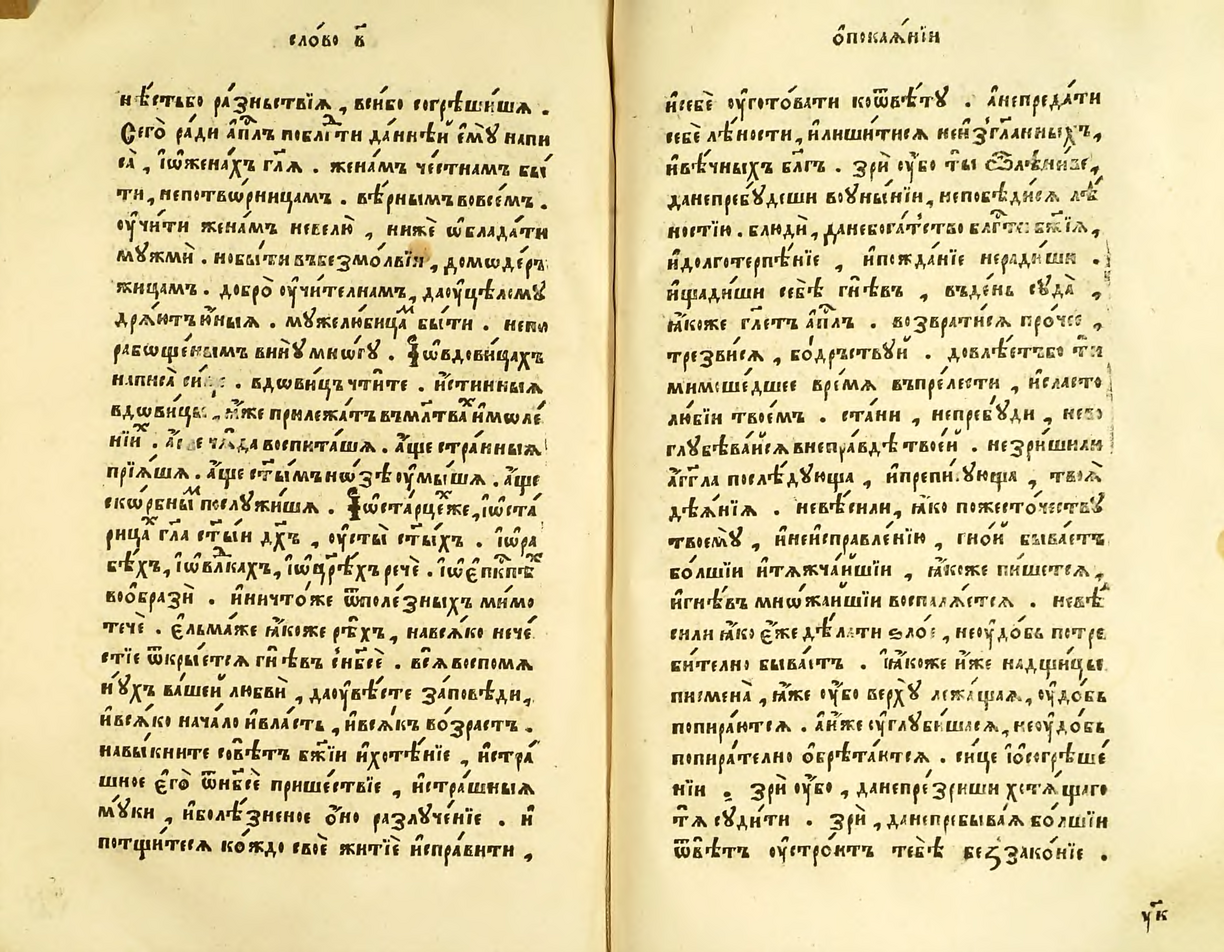 сло́во в҃
нѣ́стьбо ра́зньствїѧ , вси́бо согрѣши́шѧ .
Сего̀ ра́ди а҆п҃лъ поблг҃ти да́ннѣй є҆мꙋ̀ напи
са̀ , і҆ѡ҆женáхъ гл҃ѧ . жена́мъ че́стнамъ бы́
ти , непотвѡ́рницамъ . вѣ́рнымъ вовсе́мъ .
оу҆чи́ти жена́мъ невелю̀ , ни́же ѡ҆блада́ти
мꙋжмѝ . но бы́ти въ безмо́лвїи , домѡдер́ъ
жицамъ . добро̀ оу҆чи́телнамъ , да оу҆цѣлому́
дрѧ́ютъ ю҆́ныѧ . мꙋжелюби́цамъ бы́ти . непо
рабѡще́нымъ винꙋ̀ мно́гꙋ . І҆ ѡ҆вдови́цахъ
написа̀ си́це . вдови́цъ чти́те . и҆́стинныѧ
вдѡви́цы , ꙗ҆́же прилежа́тъ въмл҃твахъ и҆моле́
нїихъ . а҆́ще ча̑да воспита́шѧ . а҆́ще стра́нныѧ
прїѧ́шѧ . а҆́ще ст҃ы́мъ но́зѣ оу҆мы́шѧ . а҆́ще
скѡ́рбнымъ послꙋжи́шѧ . І҆ ѡ҆ста́рцехже , і҆ѡ҆ста́
рицахъ гл҃а ст҃ы́и дх҃ъ , оу҆сты̀ ст҃ы́хъ . і҆ѡ҆ра
бѣ́хъ , і҆ѡ҆влⷣкахъ , і҆ѡ҆цр҃ѣхъ речѐ . і҆ѡ҆є҆пкⷭпѣхъ
воѡбразѝ . и҆ничто́же ѿполе́зныхъ мимо
течѐ . є҆льма́же ꙗ҆́коже рѣ́хъ , навсѧ́ко нече́
стїе ѿкры́етсѧ гнѣ́въ снб҃сѐ . всѧ̀ воспомѧ
нꙋ́хъ ва́шей любвѝ , да оу҆вѣ́сте за́повѣди ,
и҆всѧ́ко нача́ло и҆вла́сть , и҆всѧ́къ во́зрастъ .
навы́кните совѣ́тъ бж҃їи и҆хотѣ́нїе , и҆стра́
шное є҆го̀ ѿнб҃сѐ прише́ствїе , и҆стра́шныѧ
мꙋ́ки , и҆болѣ́зненое о҆́но разлꙋче́нїе . и҆
потщи́тесѧ ко́ждо своѐ житїѐ и҆спра́вити ,
ѡ҆покаѧ́нїи
и҆себѐ оу҆гото́вати коѿвѣ́тꙋ . а҆непреда́ти
себѐ лѣ́ности , и҆лиши́тисѧ неизгл҃анныхъ ,
и҆вѣ́чныхъ бл҃гъ . зрѝ оу҆́бо ты̀ ѿлѣ́нивсе ,
да непребꙋ́деши воꙋны́нїи , непобѣди́сѧ лѣ́
ностїю . блюдѝ , да небога́тство блг҃ти бж҃їѧ ,
и҆долготерпѣ́нїе , и҆пожда́нїе неради́ши .
и҆щади́ши себѣ̀ гнѣ́въ , въде́нь сꙋда̀ ,
ꙗ҆́коже гл҃етъ а҆п҃лъ . возврати́сѧ про́чее ,
трезви́сѧ , бо́дрьствꙋй . довлѣ́етъбо тѝ
мимоше́дшее вре́мѧ въпре́лести , и҆сласто
лю́бїи твоѐмъ . ста́ни , непребꙋ́ди , нево
глꙋбѣва́йсѧ внепра́вдѣ твое́й . незри́шили
а҆́гг҃ла послѣ́дꙋюща , и҆препи́сꙋюща , твоѧ̀
дѣѧ́нїѧ . невѣ́сили , ꙗ҆́ко пожесто́честву
твоемꙋ̀ , и҆неисправле́нїю , гно́й быва́етъ
бо́лшїи и҆тѧ́жча́йшїи , ꙗ҆́коже пи́шетсѧ ,
и҆гнѣ́въ мно́жайшїи воспалѧ́етсѧ . невѣ́
сили ꙗ҆́ко є҆́же дѣ́лати ѕло́е , неоу҆до́бь потре
би́телно быва́етъ . ꙗ҆́коже и҆́же надщи́це
писмена̀ , ꙗ҆́же оу҆́бо верхꙋ̀ лежа́щаѧ , оу҆до́бь
попира́ютсѧ . а҆и҆́же оу҆глꙋби́шасѧ , неоу҆до́бь
попира́телно ѡ҆брѣта́ютсѧ . си́це і҆ѡ҆согрѣше́
нїи . зрѝ оу҆́бо , да непре́зриши хотѧ́щаго
тѧ̀ сꙋди́ти . зрѝ , да непребыва́ѧ бо́лшїи
ѿвѣ́тъ оу҆стро́итъ тебѣ̀ беззако́нїе .
ук҃